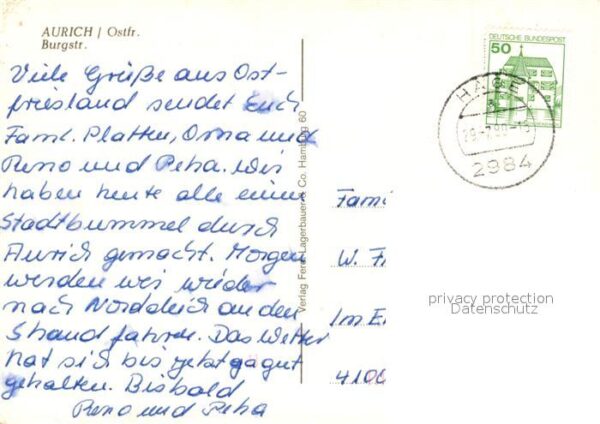 AURICH / Ostfr.
Burgstr.
Viele Grüße aus Ost-
friesland sendet Euch
Faml. Platten, Oma und
Reno und Peha. Wir
haben heute alle einen
Stadtbummel durch
Aurich gemacht. Morgen
werden wir wieder
nach Norddeich an den
Strand fahren. Das Wetter
hat sich bis jetzt ga gut
gehalten. Bisbald
Reno und Peha
Verlag Ferd. Lagerbauer & Co. Hamburg 60
50
DEUTSCHE BUNDESPOST
HAGE
2984
Fami
W. F
Im E
4100
privacy protection
Datenschutz